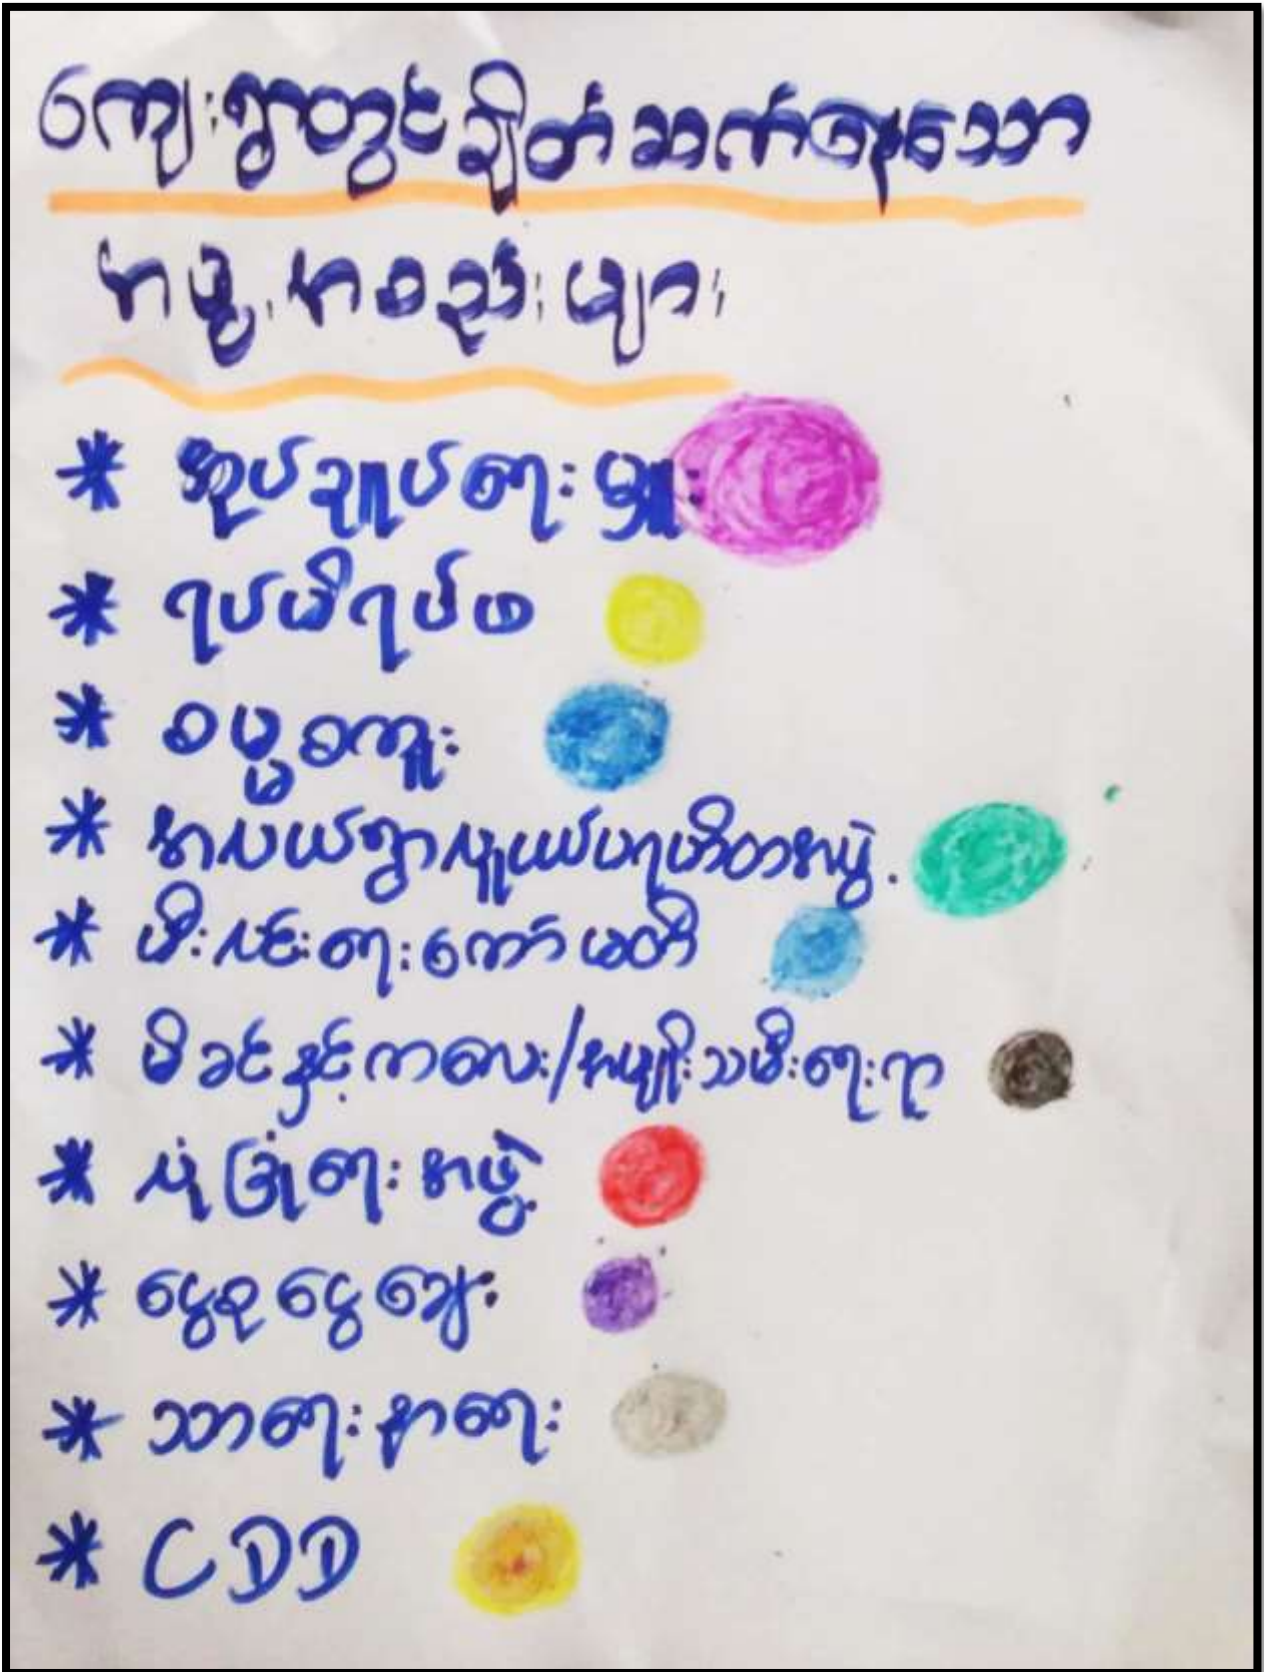 ကျေးရွာတွင်ချိတ်ဆက်နေသော
အဖွဲ့အစည်းများ
* အုပ်ချုပ်ရေးမှူး
* ရပ်မိရပ်ဖ
* ဓမ္မစကူး
* အလယ်ရွာလူငယ်ပရဟိတအဖွဲ့
* မီးလင်းရေးကော်မတီ
* မိခင်နှင့်ကလေး/အမျိုးသမီးရေးရာ
* လုံခြုံရေးအဖွဲ့
* ငွေစုငွေချေး
* သာရေးနာရေး
* CDD